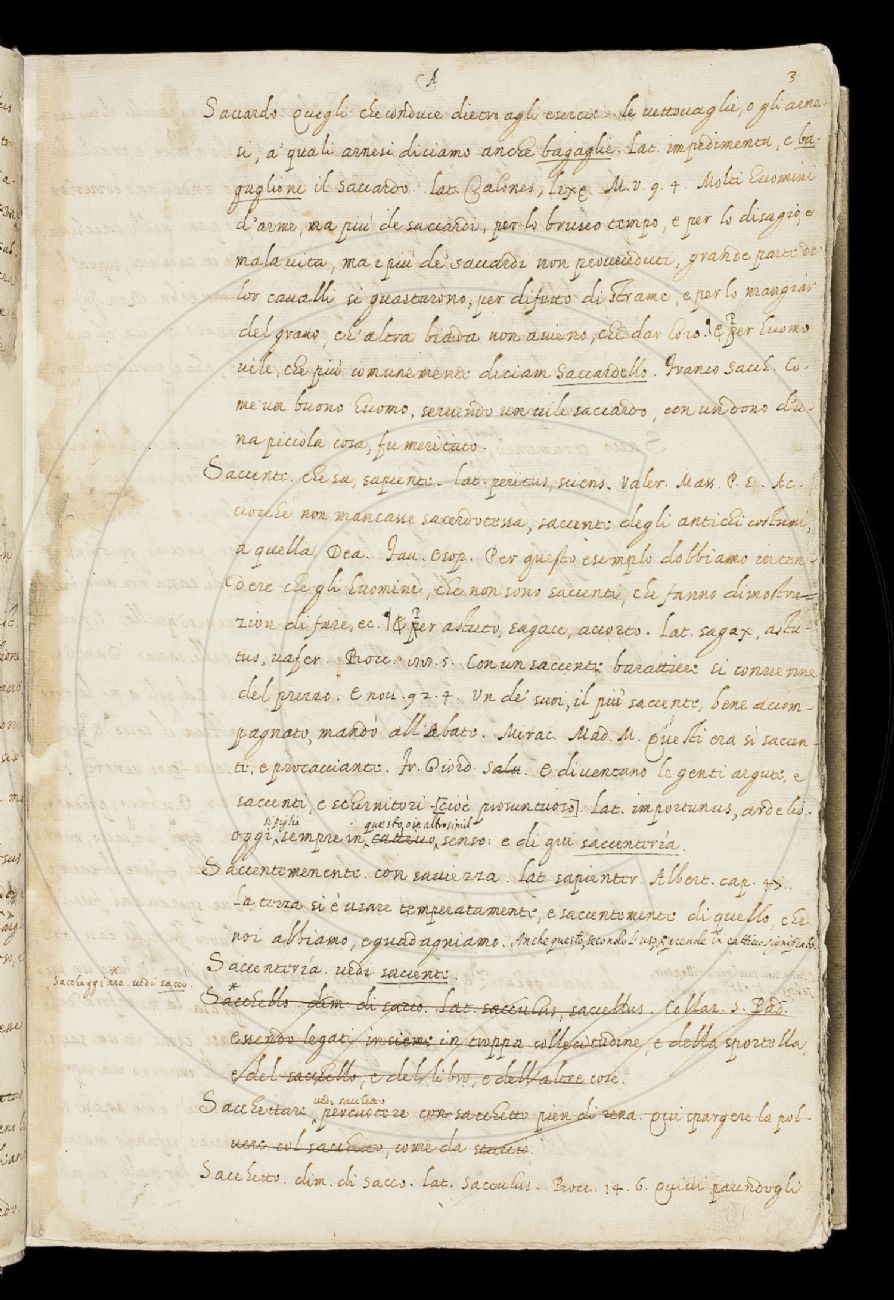 A 3
Saccardo. Quegli che conduce dietro agli eserciti le vettovaglie, o gli arne-
si, a' quali arnesi diciamo anche bagaglie. Lat. impedimenta, e ba-
gaglione il saccardo. lat. Calones, lixę. M. v. 9. 4. Molti huomini
d'arme, ma più de saccardi, per lo brusco tempo, e per lo disagio, e
mala vita, ma e più de' saccardi non proveduti, grande parte de
lor cavalli si guastarono, per difetto di strame, e per lo mangiar
del grano, ch' altra biada non avieno, che dar loro. ¶ E per huomo
vile, che più comunemente diciam Saccardello. Franco Sacch. Co-
me un buono huomo, servendo un vile saccardo, con un dono d'u-
na piccola cosa, fu meritato.
Saccente. che sa, sapiente. lat. peritus, sciens. Valer. Mass. P. S. Ac-
ciocche non mancasse sacerdotessa, saccente degli antichi costumi,
a quella Dea. Fav. Esop. Per questo esemplo dobbiamo inten-
dere che gli huomini, che non sono saccenti, che fanno dimostra-
zion di fare, ec. ¶ E per astuto, sagace, accorto. Lat. sagax, astu-
tus, vafer. Bocc. nov. 5. Con un saccente barattiere si convenne
del prezzo. E nov. 92. 4. Un de' suoi, il più saccente, bene accom-
pagnato, mandò all' Abate. Mirac. Mad. M. Questi era sì saccen-
te, e procacciante. Fr. Giord. Salu. E diventano le genti argute, e
saccenti, e schernitori [cioè prosuntuosi]. lat. importunus, ardelio.
si piglia questo, o in altro simil
oggi sempre in cattivo senso: e di qui saccenteria.
Saccentemente. con saviezza. lat. sapienter. Albert. cap. 47.
La terza si è usare temperatamente, e saccentemente di quello, che
noi abbiamo, e guadagniamo. Anche questo, secondo l'uso, si prende in cattivo significato.
Saccenteria. vedi saccente.
Saccheggiare. vedi sacco.
Sacchello. dim. di sacco. Lat. sacculus, saccellus. Collaz. S. Pad.
essendo legati insieme in troppa sollecitudine, e della sportella,
e del sacchello, e del libro, e dell'altre cose.
vedi sacchetto
Sacchettare. percuotere con sacchetto pien di rena. Qui spargere la pol-
vere col sacchetto, come da staccio.
Sacchetto. dim. di sacco. lat. sacculus. Bocc. 14. 6. Quivi parendogli